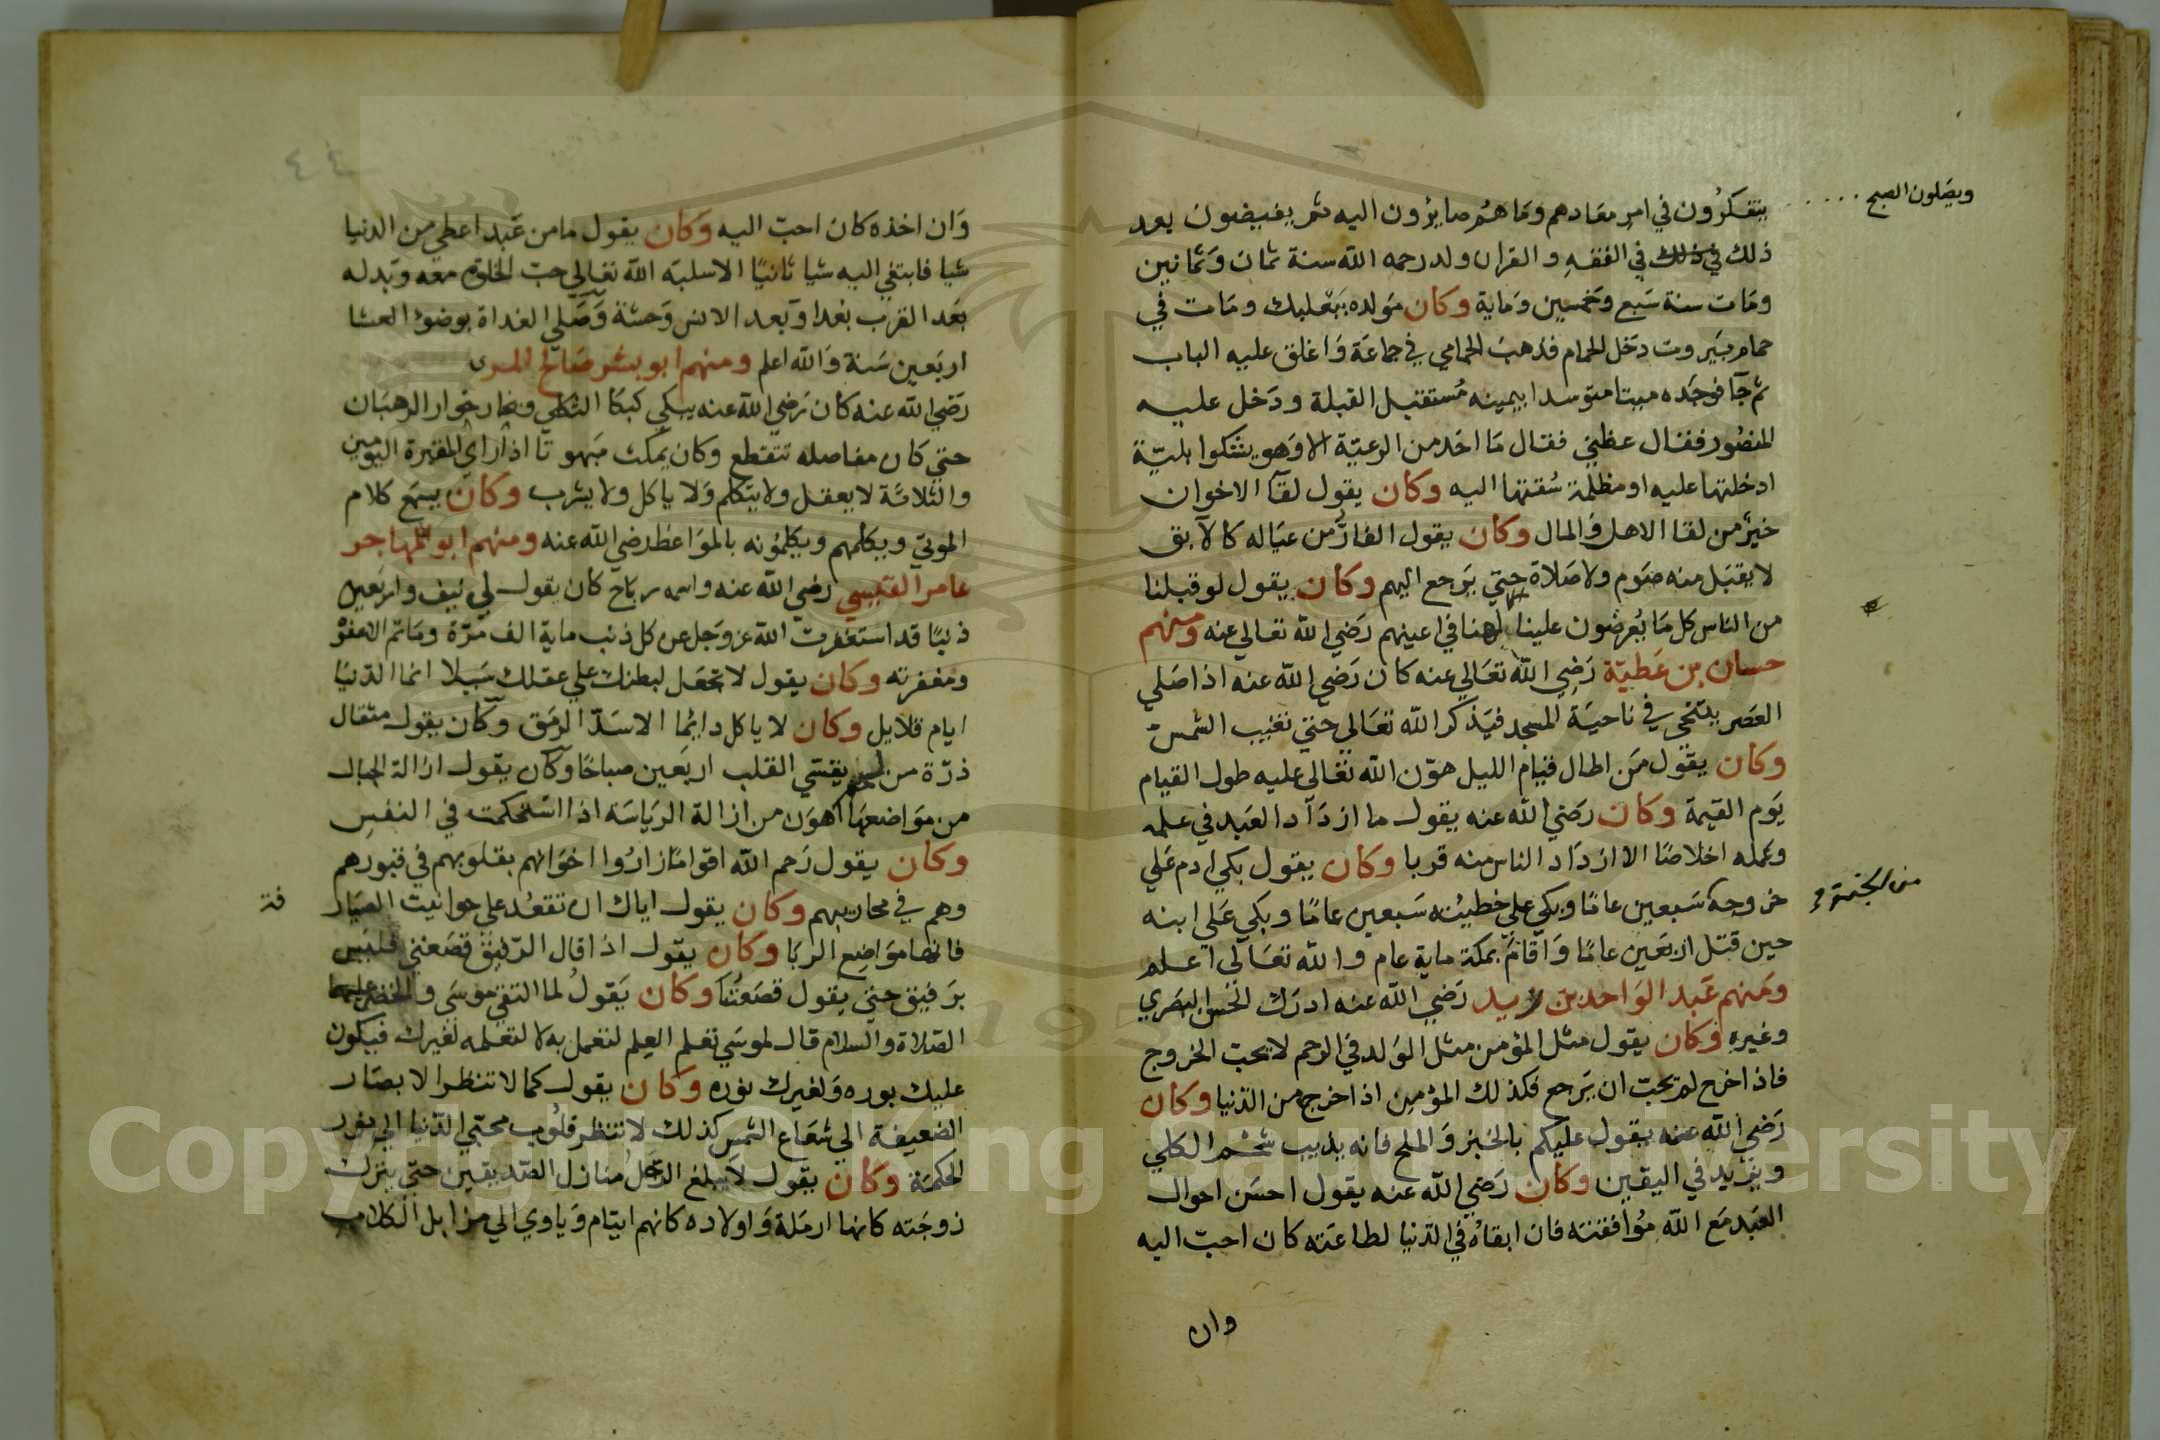 ويصلون الصبح
يتفكرون في امر معادهم وما هم صايرون اليه ثم يفيضون بعد
ذلك في ذلك في الفقه والقران ولد رحمه الله سنة ثمان وثمانين
ومات سنة سبع وخمسين وماية وكان مولده ببعلبك ومات في
حمام بيروت دخل الحمام فذهب الحمامي في جماعة واغلق عليه الباب
ثم جآ فوجده ميتا متوسدا بيمينه مستقبل القبلة ودخل عليه
المنصور فقال عظني فقال ما احد من الرعية الا وهو يشكوا بلية
ادخلتها عليه او مظلمة سقتها اليه وكان يقول لقآ الاخوان
خير من لقا الاهل والمال وكان يقول الفار من عياله كالآبق
لا يقبل منه صوم ولا صلاة حتي يرجع اليهم وكان يقول لو قبلنا
من الناس كل ما يعرضون علينا لهنا في اعينهم رضي الله تعالي عنه ومنهم
حسان بن عطية رضي الله تعالي عنه كان رضي الله عنه اذا صلي
العصر يتنحي في ناحية المسجد فيذكر الله تعالي حتي تغيب الشمس
وكان يقول من اطال قيام الليل هون الله تعالي عليه طول القيام
يوم القيمة وكان رضي الله عنه يقول ما ازدآد العبد في علمه
وعمله اخلاصا الا ازداد الناس منه قربا وكان يقول بكي ادم علي
خروجه سبعين عاما وبكي علي خطيئته سبعين عاما وبكي علي ابنه
من الجنة
حين قتل اربعين عاما واقام بمكة ماية عام والله تعالي اعلم
ومنهم عبد الواحد بن زيد رضي الله عنه ادرك الحسن البصري
وغيره وكان يقول مثل المؤمن مثل الولد في الرحم لا يحب الخروج
فاذا خرج لم يحب ان يرجع فكذلك المؤمن اذا خرج من الدنيا وكان
رضي الله عنه يقول عليكم بالخبز والملح فانه يذيب شحم الكلي
ويزيد في اليقين وكان رضي الله عنه يقول احسن احوال
العبد مع الله موافقته فان ابقاه في الدنيا لطاعته كان احب اليه
وان
٤٤
وان اخذه كان احب اليه وكان يقول ما من عبد اعطي من الدنيا
شيا فابتغي اليه شيا ثانيا الا سلبه الله تعالي حب الخلوة معه وبدله
بعد القرب بعدا وبعد الانس وحشة وصلي الغداة بوضوء العشا
اربعين سنة والله اعلم ومنهم ابو بشر صالح المري
رضي الله عنه كان رضي الله عنه يبكي كبكا الثكلي ويخار خوار الرهبان
حتي كان مفاصله تتقطع وكان يمكث مبهوتا اذا راي المقبرة اليومين
والثلاثة لا يعقل ولا يتكلم ولا ياكل ولا يشرب وكان يسمع كلام
الموتي ويكلمهم ويكلمونه بالمواعظ رضي الله عنه ومنهم ابو المهاجر
عامر القيسي رضي الله عنه واسمه رباح كان يقول لي نيف واربعين
ذنبا قد استغفرت الله عز وجل عن كل ذنب ماية الف مرة وما ثم الا عفو
ومغفرته وكان يقول لا تجعل لبطنك علي عقلك سبيلا انما الدنيا
ايام قلايل وكان لا ياكل دايما الا سد الرمق وكان يقول مثقال
ذرة من لحم يقسي القلب اربعين صباحا وكان يقول ازالة الجبال
من مواضعها اهون من ازالة الرياسة اذا استحكمت في النفس
وكان يقول رحم الله اقواما زاروا اخوانهم بقلوبهم في قبورهم
وهم في محاريبهم وكان يقول اياك ان تقعد علي حوانيت الصيار
فة
فانها مواضع الربا وكان يقول اذا قال الرفيق قصعتي فليس
برفيق حتي يقول قصعتنا وكان يقول لما التقي موسي والخضر عليهما
الصلاة والسلام قال لموسي تعلم العلم لتعمل به لا لتعلمه لغيرك فيكون
عليك بوره ولغيرك نوره وكان يقول كما لا تنظر الابصار
الضعيفة الي شعاع الشمس كذلك لا تنظر قلوب محبي الدنيا الي نور
الحكمة وكان يقول لا يبلغ الرجل منازل الصديقين حتي يترك
زوجته كانها ارملة واولاده كانهم ايتام وياوي الي مزابل الكلاب
Copyright © King Saud University